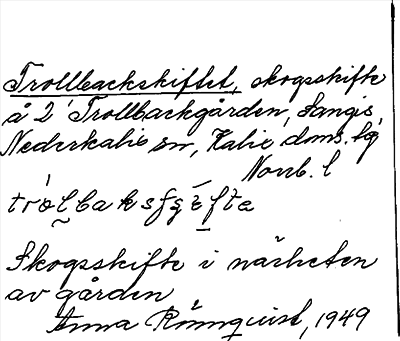 Trollbackskiftet, skogsskifte
å 2 Trollbackgården, Sangis
Nederkalix sn, Kalix doms. fög
Norrb. l
Skogsskifte i närheten
av gården
Anna Rönnquist, 1949